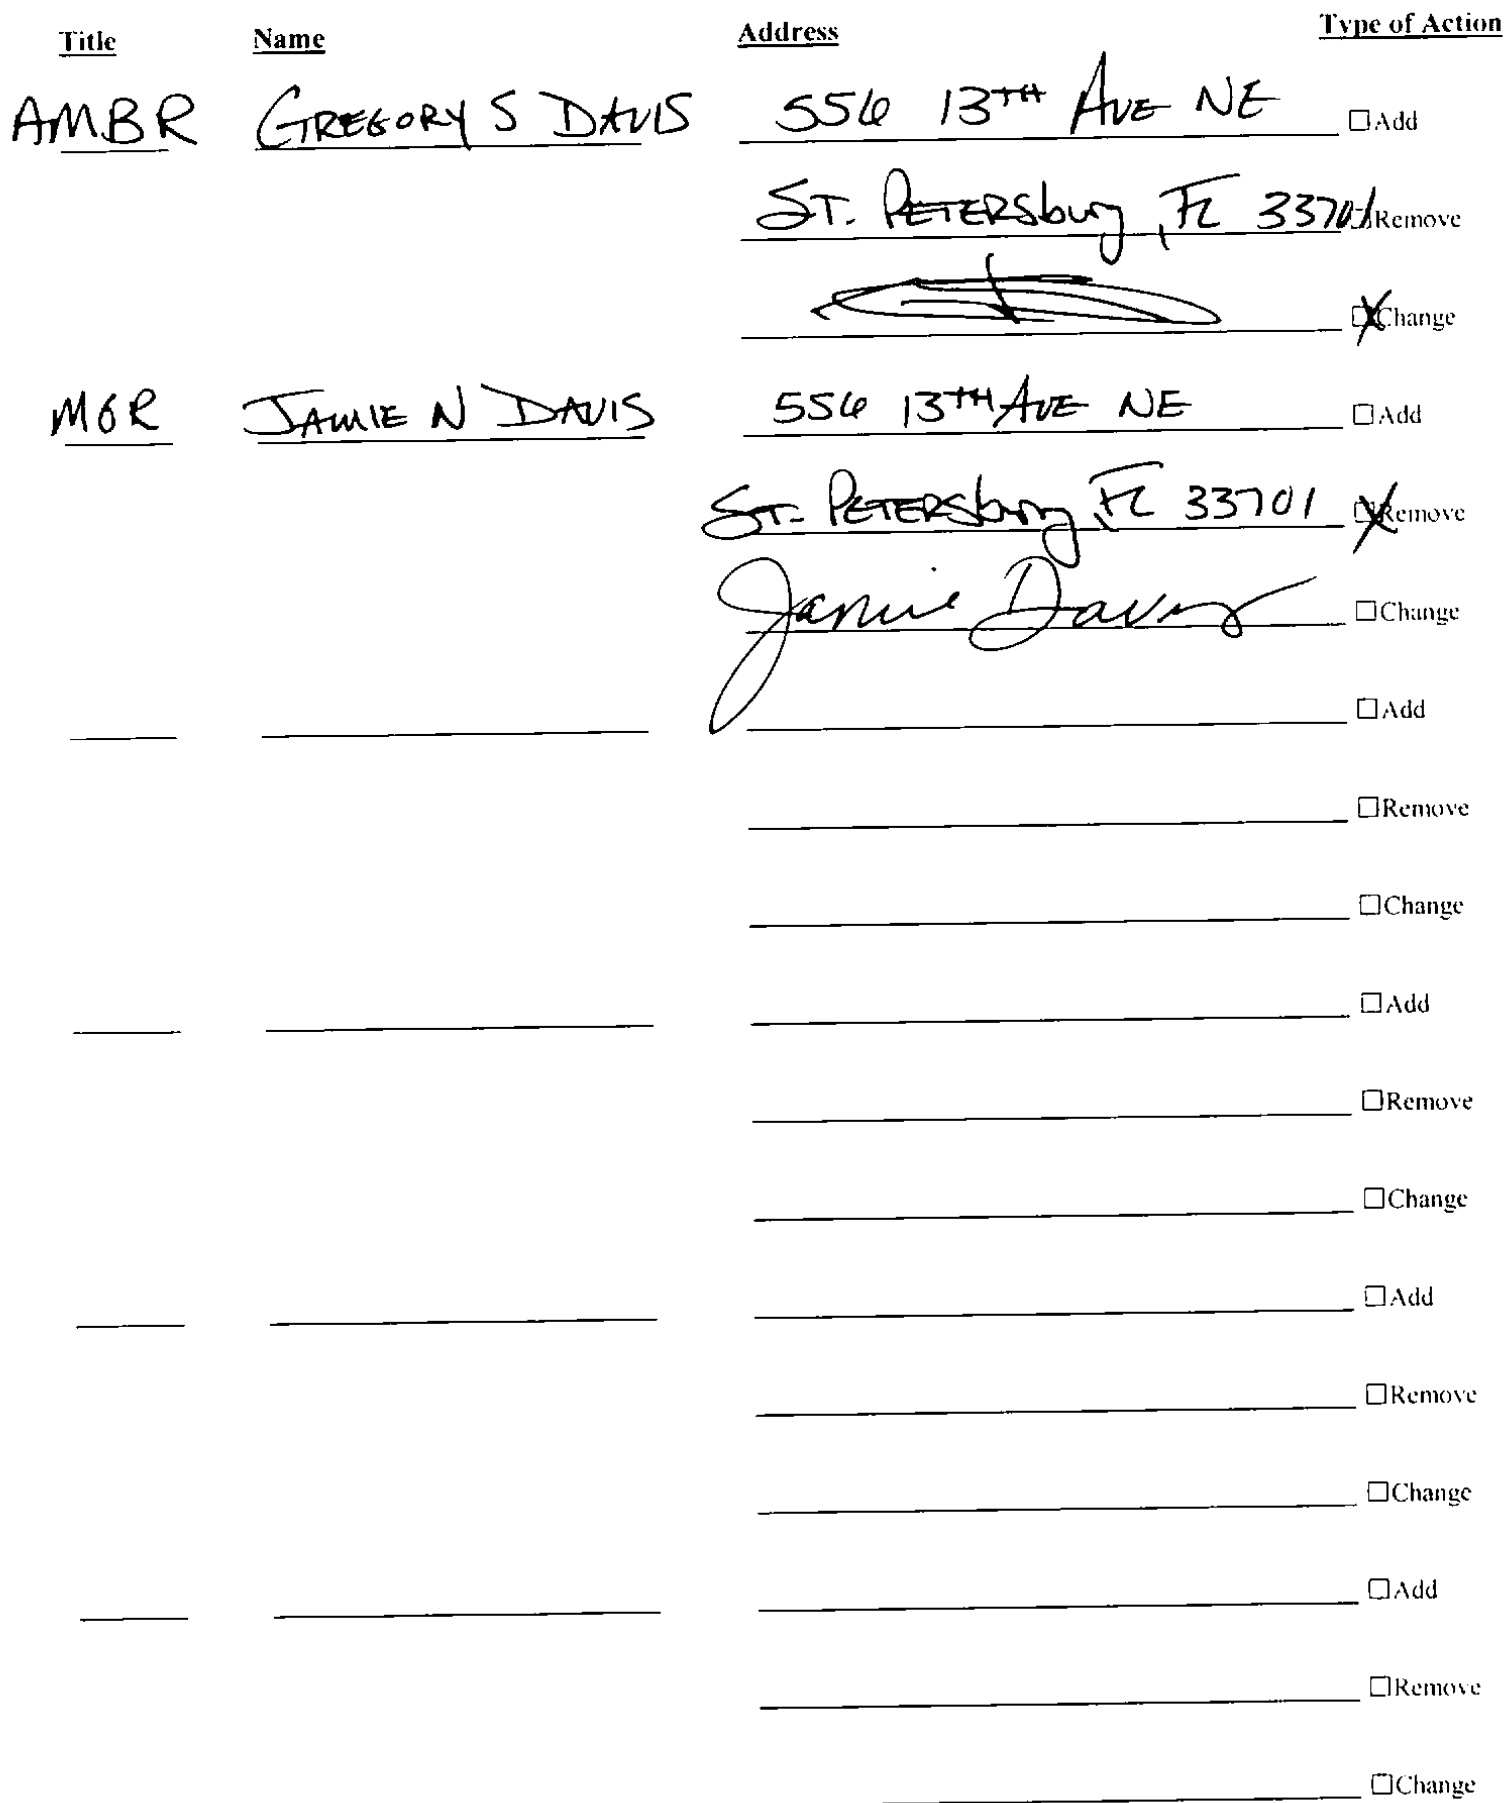 Title Name Address Type of Action
AMBR GREGORY S DAVIS 556 13TH AVE NE ☐Add
ST. PETERSburg, FL 33701 ☐Remove
☒Change
MGR JAMIE N DAVIS 556 13TH AVE NE ☐Add
ST. PETERSburg, FL 33701 ☒Remove
Jamie Davis ☐Change
☐Add
☐Remove
☐Change
☐Add
☐Remove
☐Change
☐Add
☐Remove
☐Change
☐Add
☐Remove
☐Change